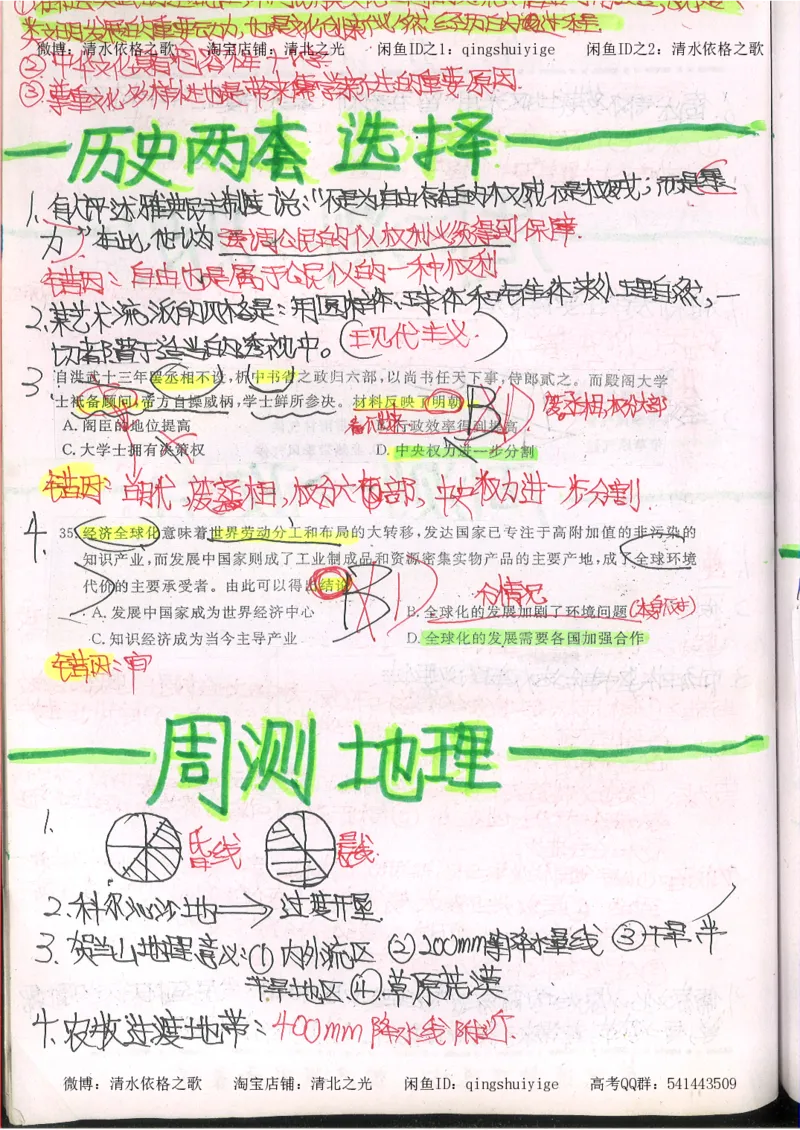 类文明发展的重要动力,也是文化创新产业
微博：清水依格之歌 淘宝店铺：清北之光 闲鱼ID之1：qingshuiyige 闲鱼ID之2：清水依格之歌
②中华文化具有包容性
③尊重文化多样性也是带来儒学新生的重要原因
历史两套 选择
1、有人评述雅典民主制度说:“不是为自由
力”在此,他认为 强调公民的权利必须得到保障.
错因:自由也是属于公民的一种权利
2、某艺术流派的风格是:用圆柱体、球体和右隹体来处理自然,一
切都置于适当的透视中。(现代主义)
3
自洪武十三年罢丞相不设,析中书省之政归六部,以尚书任天下事,侍郎贰之。而殿阁大学
士祗备顾问,帝方自操威柄,学士鲜所参决。材料反映了明朝 B D 废丞相,权分六部
A. 阁臣的地位提高 行政效率得到提高
C. 大学士拥有决策权 D. 中央权力进一步分割
错因:明代,废丞相,权分六部,中央权力进一步分割.
4.
35. 经济全球化意味着世界劳动分工和布局的大转移,发达国家已专注于高附加值的非污染的
知识产业,而发展中国家则成了工业制成品和资源密集实物产品的主要产地,成了全球环境
代价的主要承受者。由此可以得出结论 B D 不情况
A. 发展中国家成为世界经济中心 B. 全球化的发展加剧了环境问题
C. 知识经济成为当今主导产业 D. 全球化的发展需要各国加强合作
错因:审
周测 地理
1、 昏线 晨线
2、科尔沁沙地⇒过度开垦.
3、贺兰山地理意义:①内外流区 ②200mm等降水量线 ③干旱、半
干旱地区、④草原荒漠
4、农牧过渡地带:400mm降水线附近.
微博：清水依格之歌 淘宝店铺：清北之光 闲鱼ID：qingshuiyige 高考QQ群：541443509